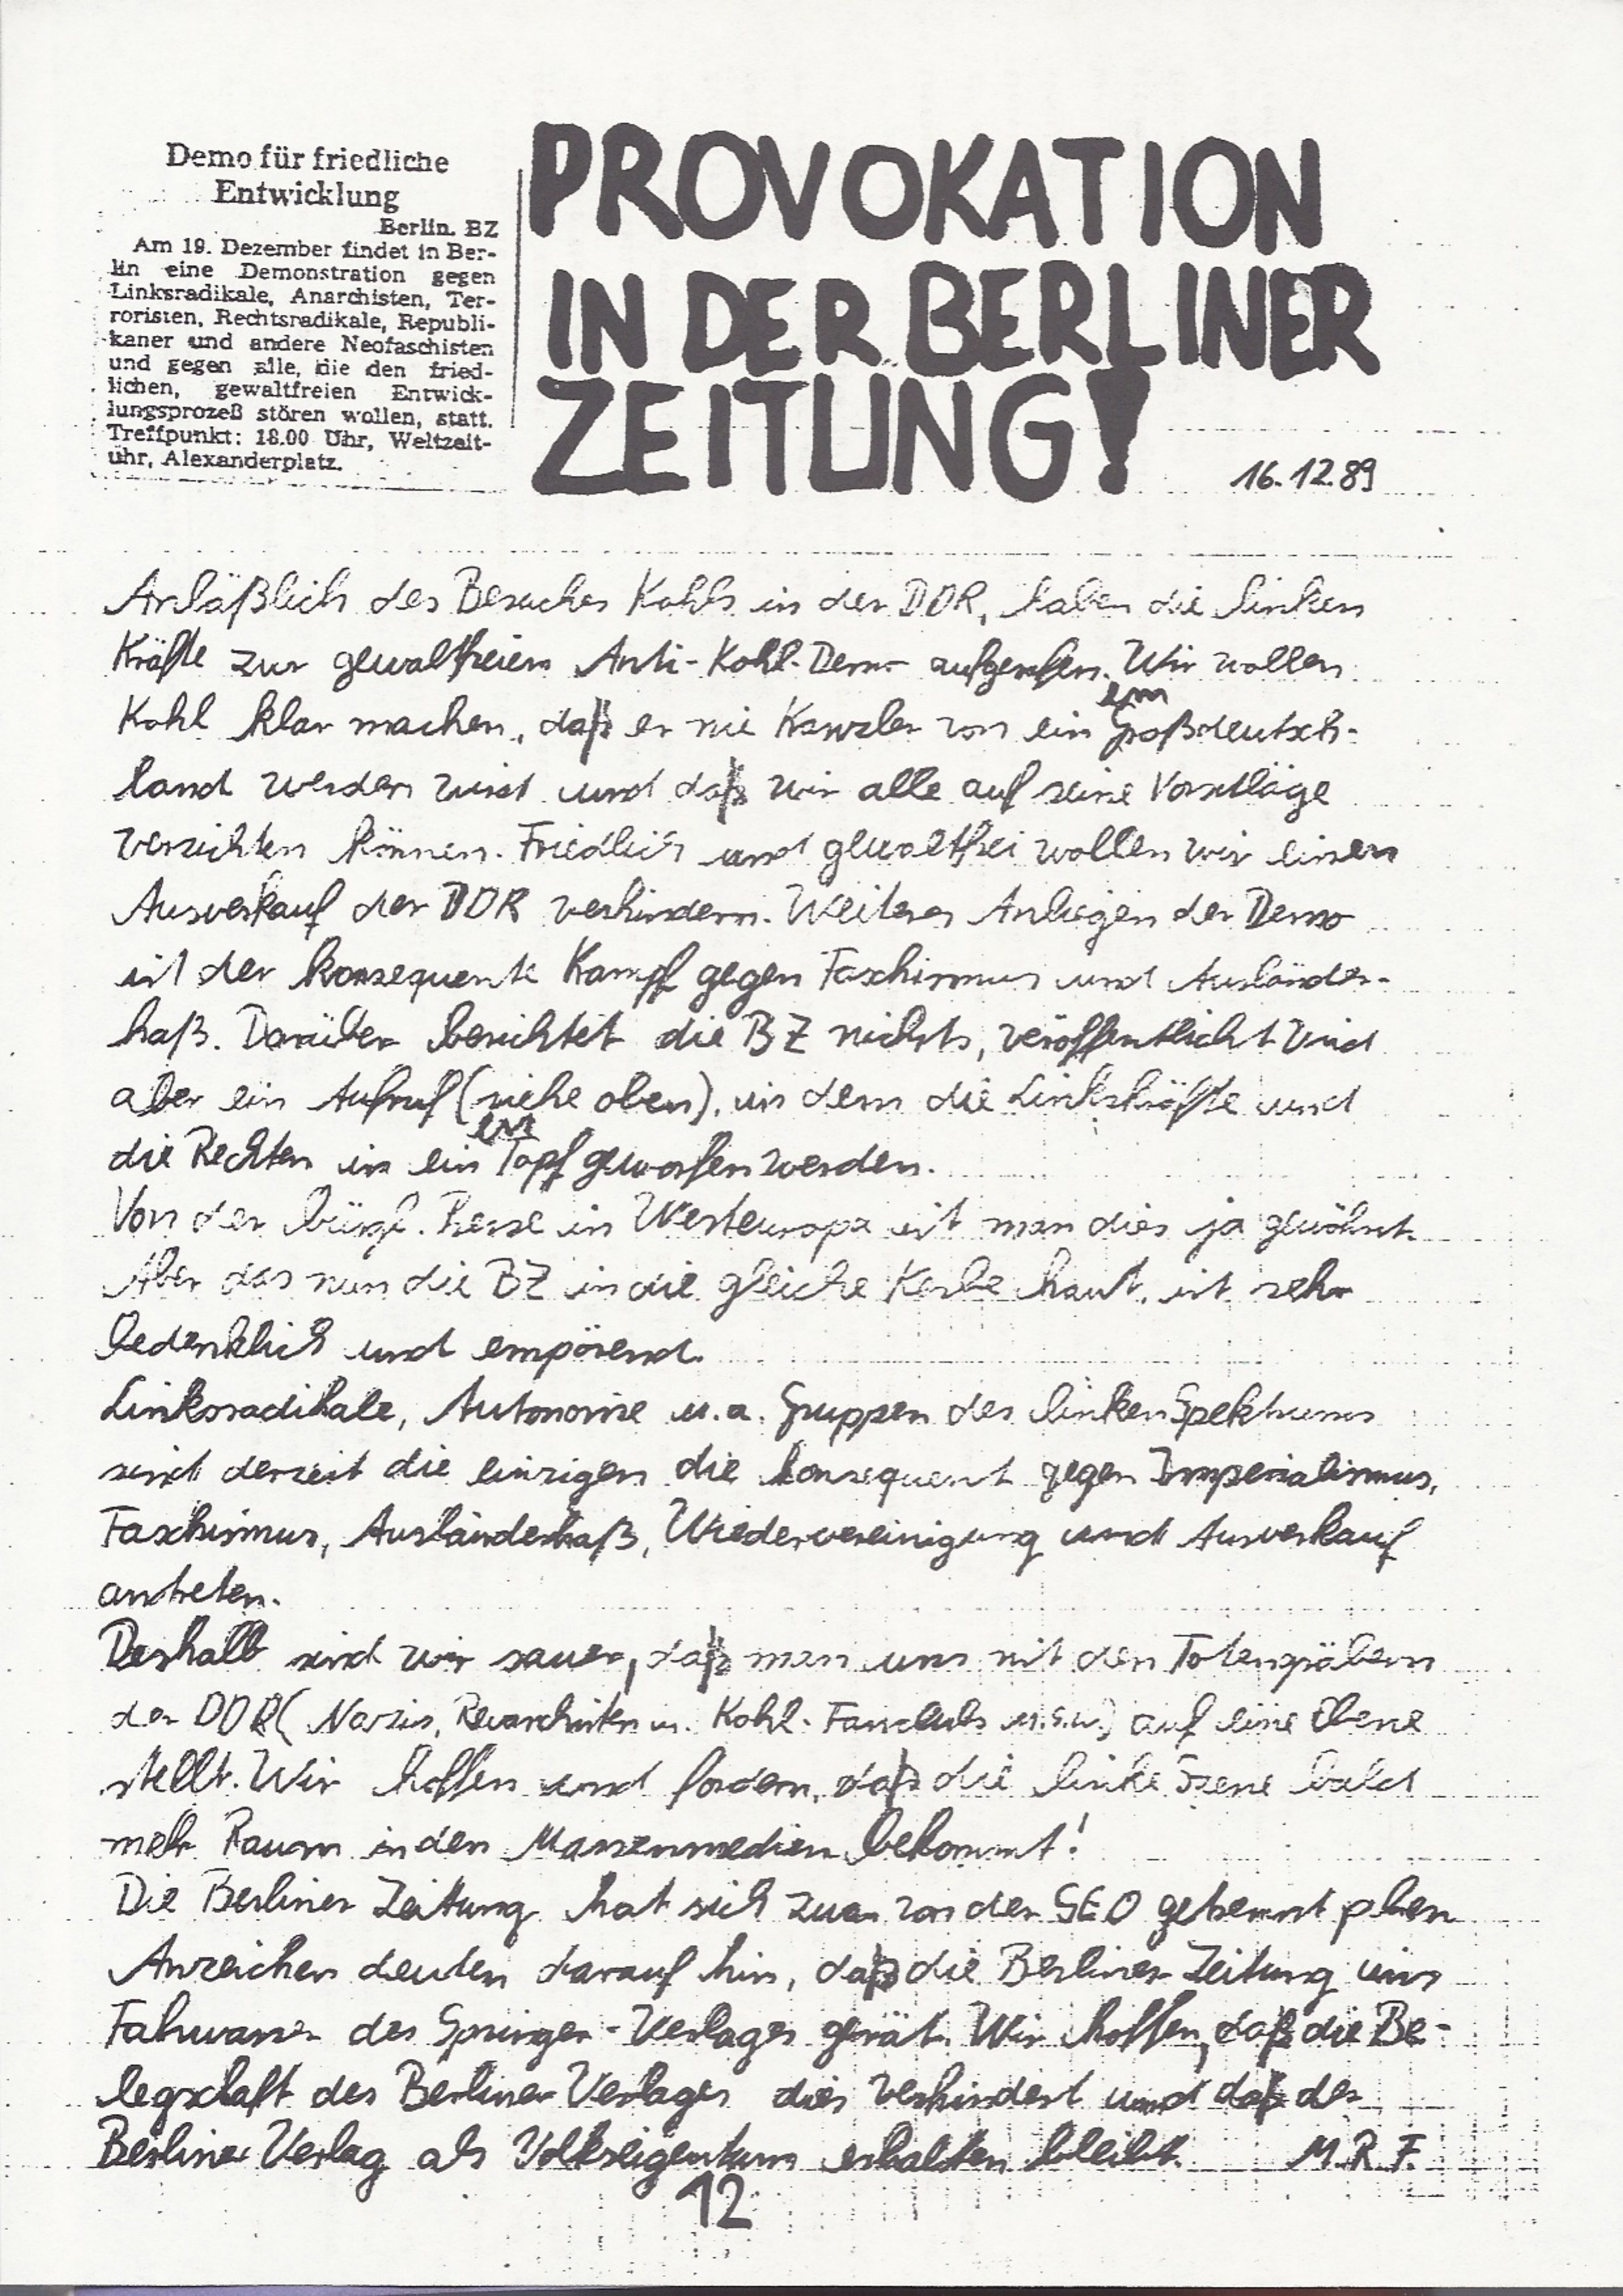 Demo für friedliche
Entwicklung
Berlin. BZ
Am 19. Dezember findet in Ber-
lin eine Demonstration gegen
Linksradikale, Anarchisten, Ter-
roristen, Rechtsradikale, Republi-
kaner und andere Neofaschisten
und gegen alle, die den fried-
lichen, gewaltfreien Entwick-
lungsprozeß stören wollen, statt.
Treffpunkt: 18.00 Uhr, Weltzeit-
uhr, Alexanderplatz.
PROVOKATION
IN DER BERLINER
ZEITUNG!
16.12.89
Anläßlich des Besuches Kohls in der DDR, haben die linken
Kräfte zur gewaltfreien Anti-Kohl-Demo aufgerufen. Wir wollen
Kohl klar machen, daß er nie Kanzler von einem Großdeutsch-
land werden wird und daß wir alle auf seine Vorschläge
verzichten können. Friedlich und gewaltfrei wollen wir einen
Ausverkauf der DDR verhindern. Weiteres Anliegen der Demo
ist der konsequente Kampf gegen Faschismus und Ausländer-
haß. Darüber berichtet die BZ nichts, veröffentlicht wird
aber ein Aufruf (siehe oben), in dem die Linkskräfte und
die Rechten in einen Topf geworfen werden.
Von der bürgl. Presse in Westeuropa ist man dies ja gewöhnt.
Aber das nun die BZ in die gleiche Kerbe haut, ist sehr
bedenklich und empörend.
Linksradikale, Autonome u.a. Gruppen des linken Spektrums
sind derzeit die einzigen die konsequent gegen Imperialismus,
Faschismus, Ausländerhaß, Wiedervereinigung und Ausverkauf
antreten.
Deshalb sind wir sauer, daß man uns mit den Totengräbern
der DDR (Nazis, Revanchisten u. Kohl-Fanclubs u.s.w.) auf eine Ebene
stellt. Wir hoffen und fordern, daß die linke Szene bald
mehr Raum in den Massenmedien bekommt!
Die Berliner Zeitung hat sich zwar von der SED getrennt
Anzeichen deuten darauf hin, daß die Berliner Zeitung ins
Fahrwasser des Springer-Verlages gerät. Wir hoffen, daß die Be-
legschaft des Berliner Verlages dies verhindert und daß der
Berliner Verlag als Volkseigentum erhalten bleibt. M.R.F.
12